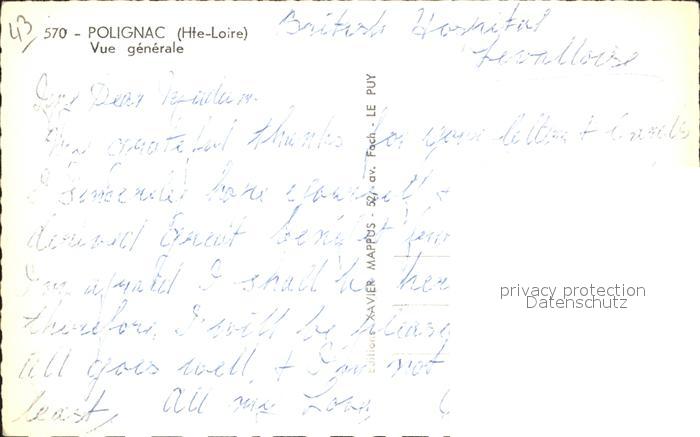 43
570 - POLIGNAC (Hte-Loire)
Vue générale
British Hospital
Levallois
Dear Madam
grateful thanks for your letter + cards
I sincerely hope yourself +
derived great benefit from
I'm afraid I shall be her
therefore, I will be pleas
all goes well, + I'm not
least, All my Love
Editions XAVIER MAPPUS - 52, av. Foch, LE PUY
privacy protection
Datenschutz